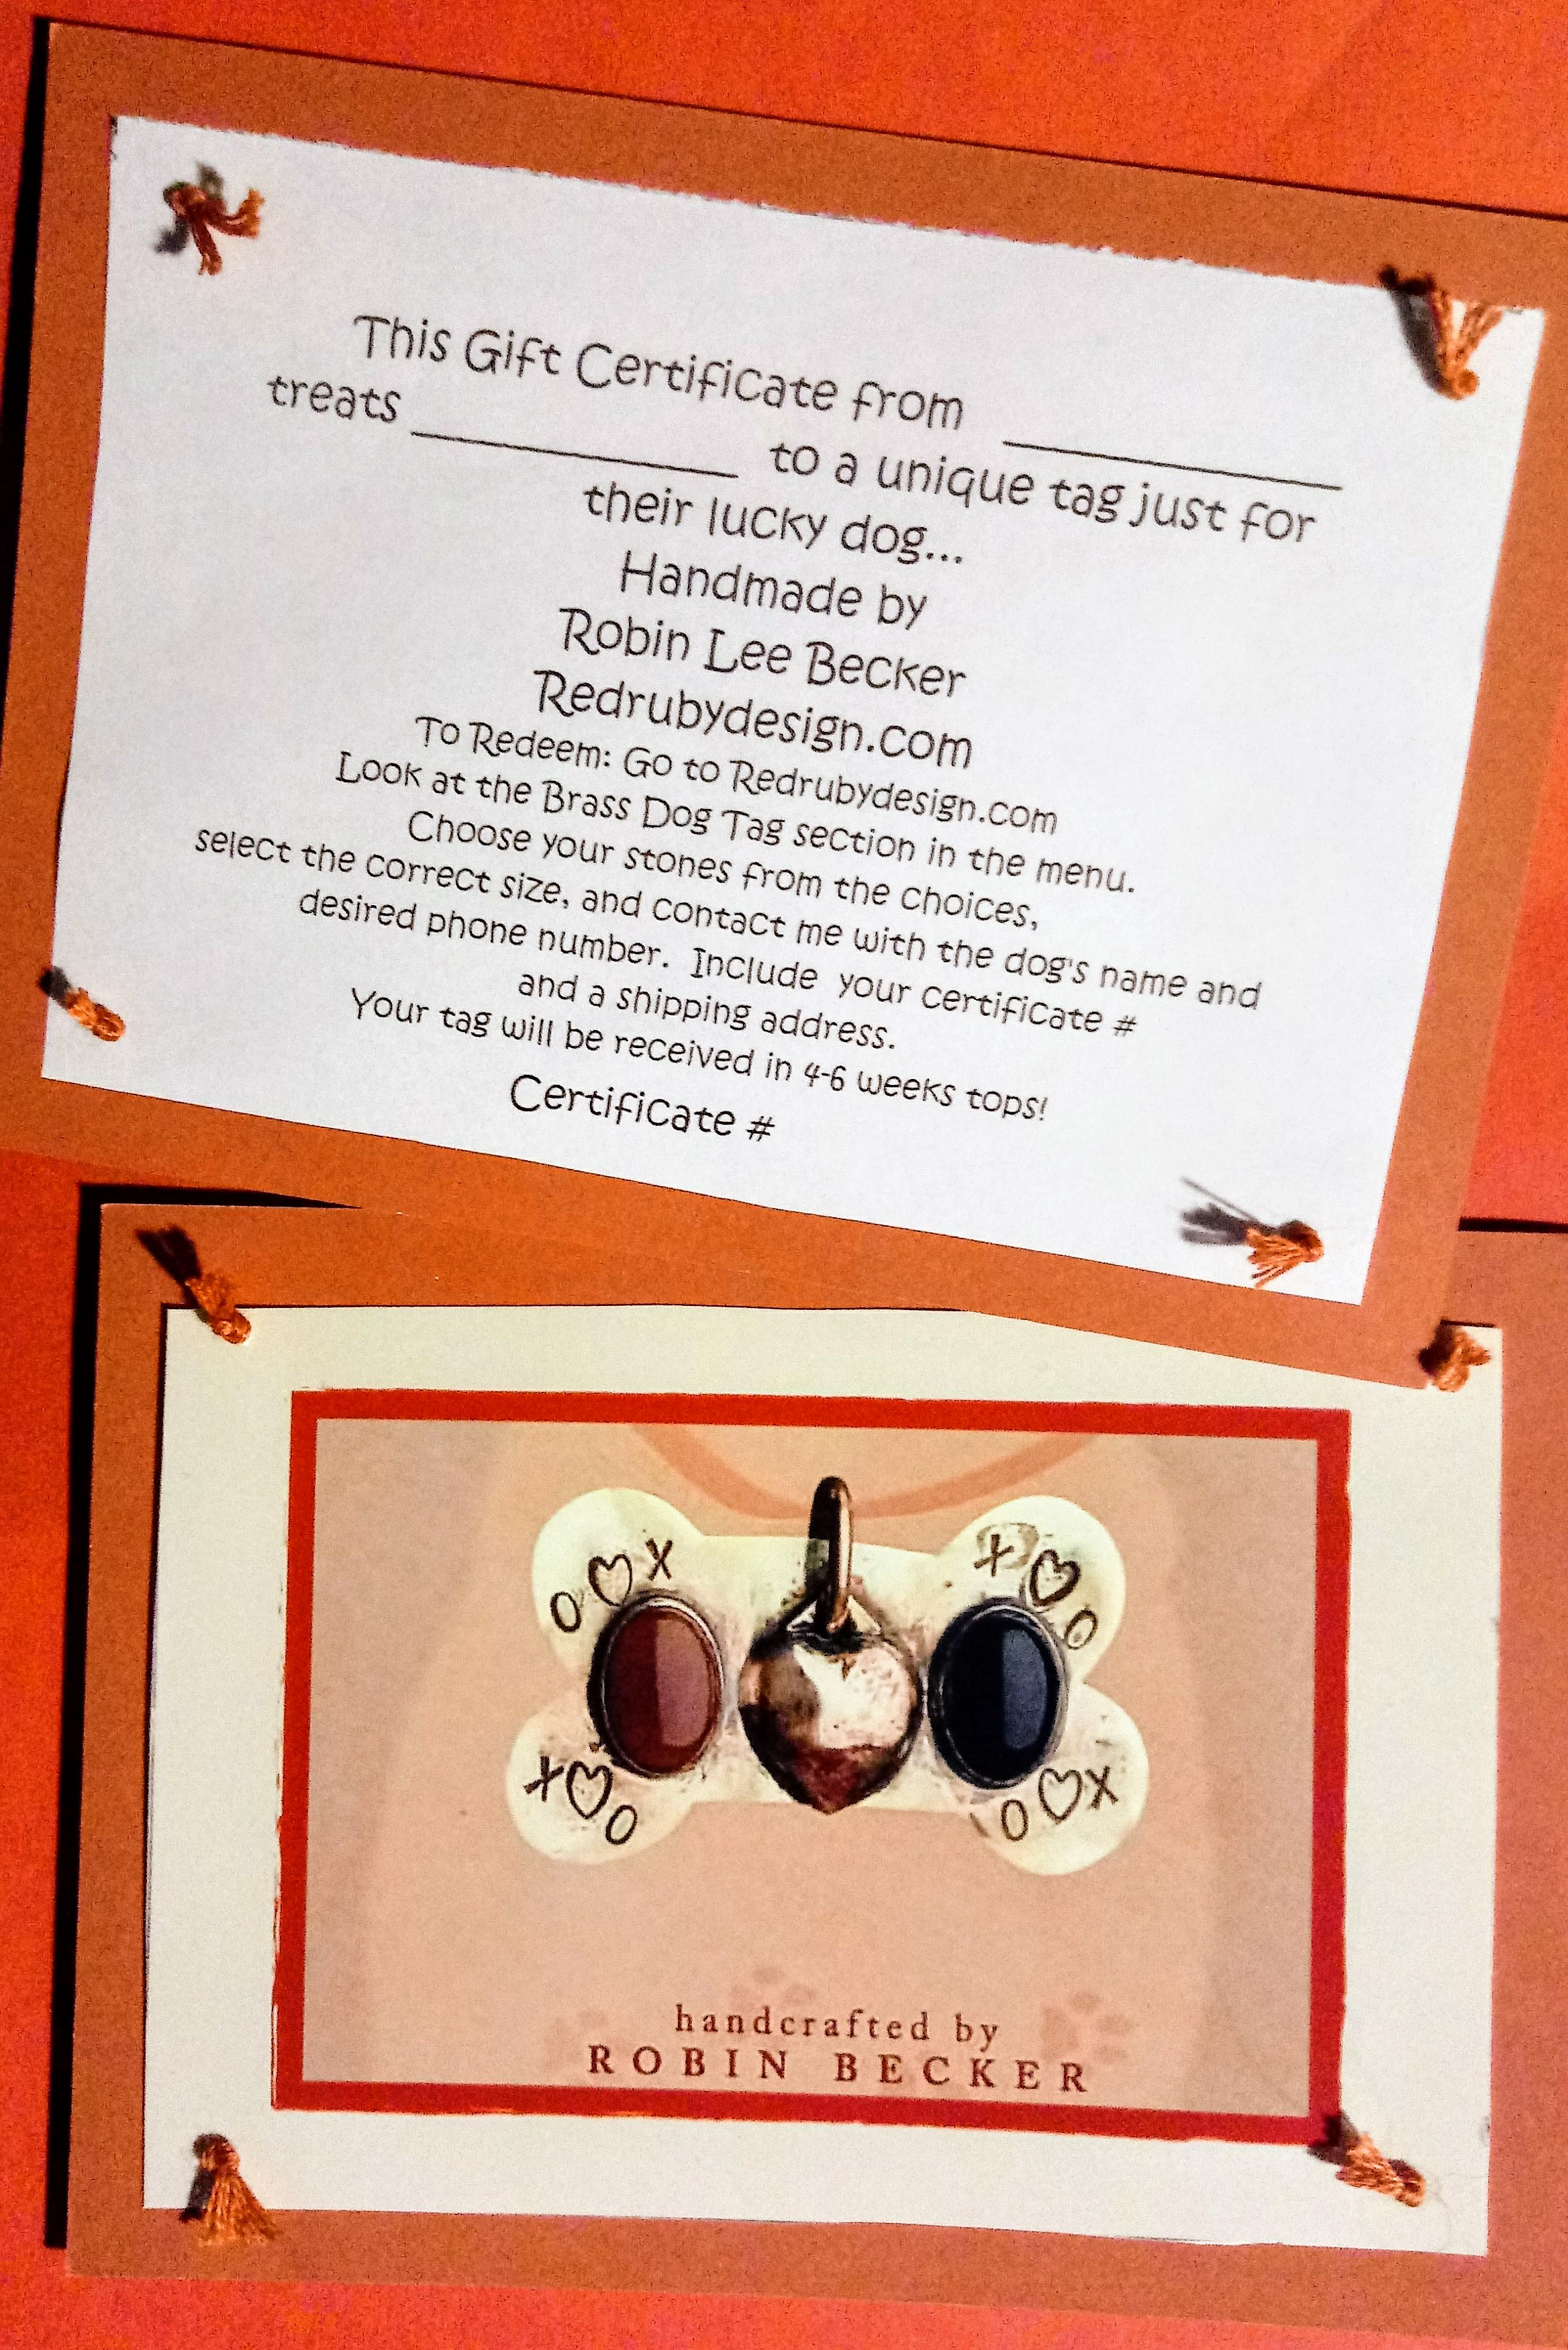 This Gift Certificate from ____________
treats ____________ to a unique tag just for
their lucky dog...
Handmade by
Robin Lee Becker
Redrubydesign.com
To Redeem: Go to Redrubydesign.com
Look at the Brass Dog Tag section in the menu.
Choose your stones from the choices,
select the correct size, and contact me with the dog's name and
desired phone number. Include your certificate #
and a shipping address.
Your tag will be received in 4-6 weeks tops!
Certificate #
O♡X
X♡O
X♡O
O♡X
handcrafted by
ROBIN BECKER